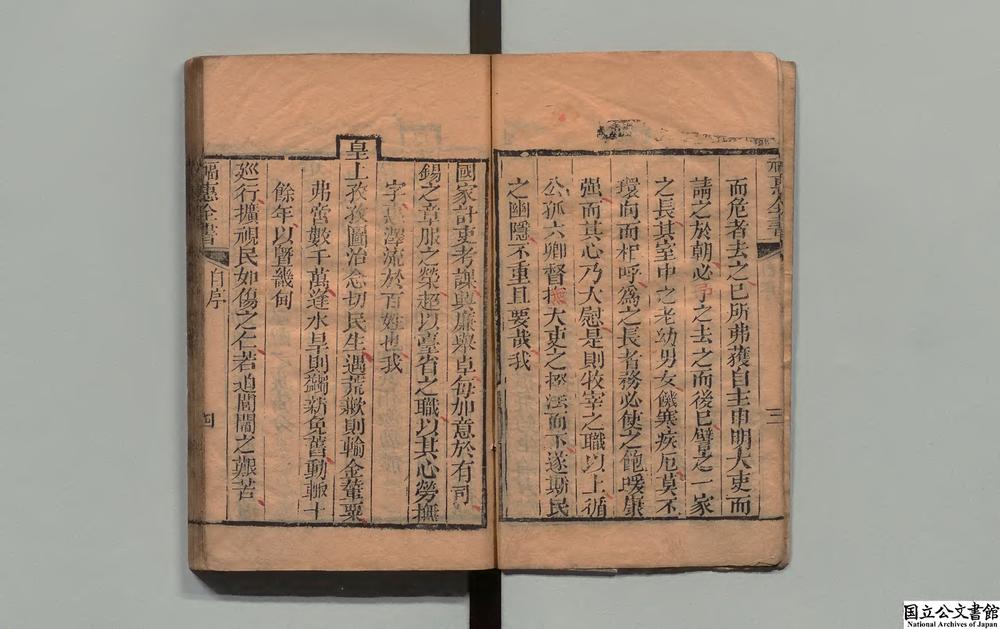 福惠全書
三
而危者去之已所弗獲自主申明大吏而
請之於朝必予之去之而後已譬之一家
之長其室中之老幼男女饑寒疾厄莫不
環向而相呼爲之長者務必使之飽煖康
强而其心乃大慰是則牧宰之職以上循
公孤六卿督撫大吏之 而下遂斯民
之幽隱不重且要哉我
國家計吏考課興廉舉卓每加意於有司
錫之章服之榮超以臺省之職以其心勞撫
字 澤流於百姓也我
皇上孜孜圖治念切民生遇荒歉則輸金輦粟
弗啻數千萬逢水旱則蠲新免舊動輒十
餘年以曁畿甸
廵行擴視民如傷之仁若道閭閻之艱苦
福惠全書
自序
四
国立公文書館
National Archives of Japan